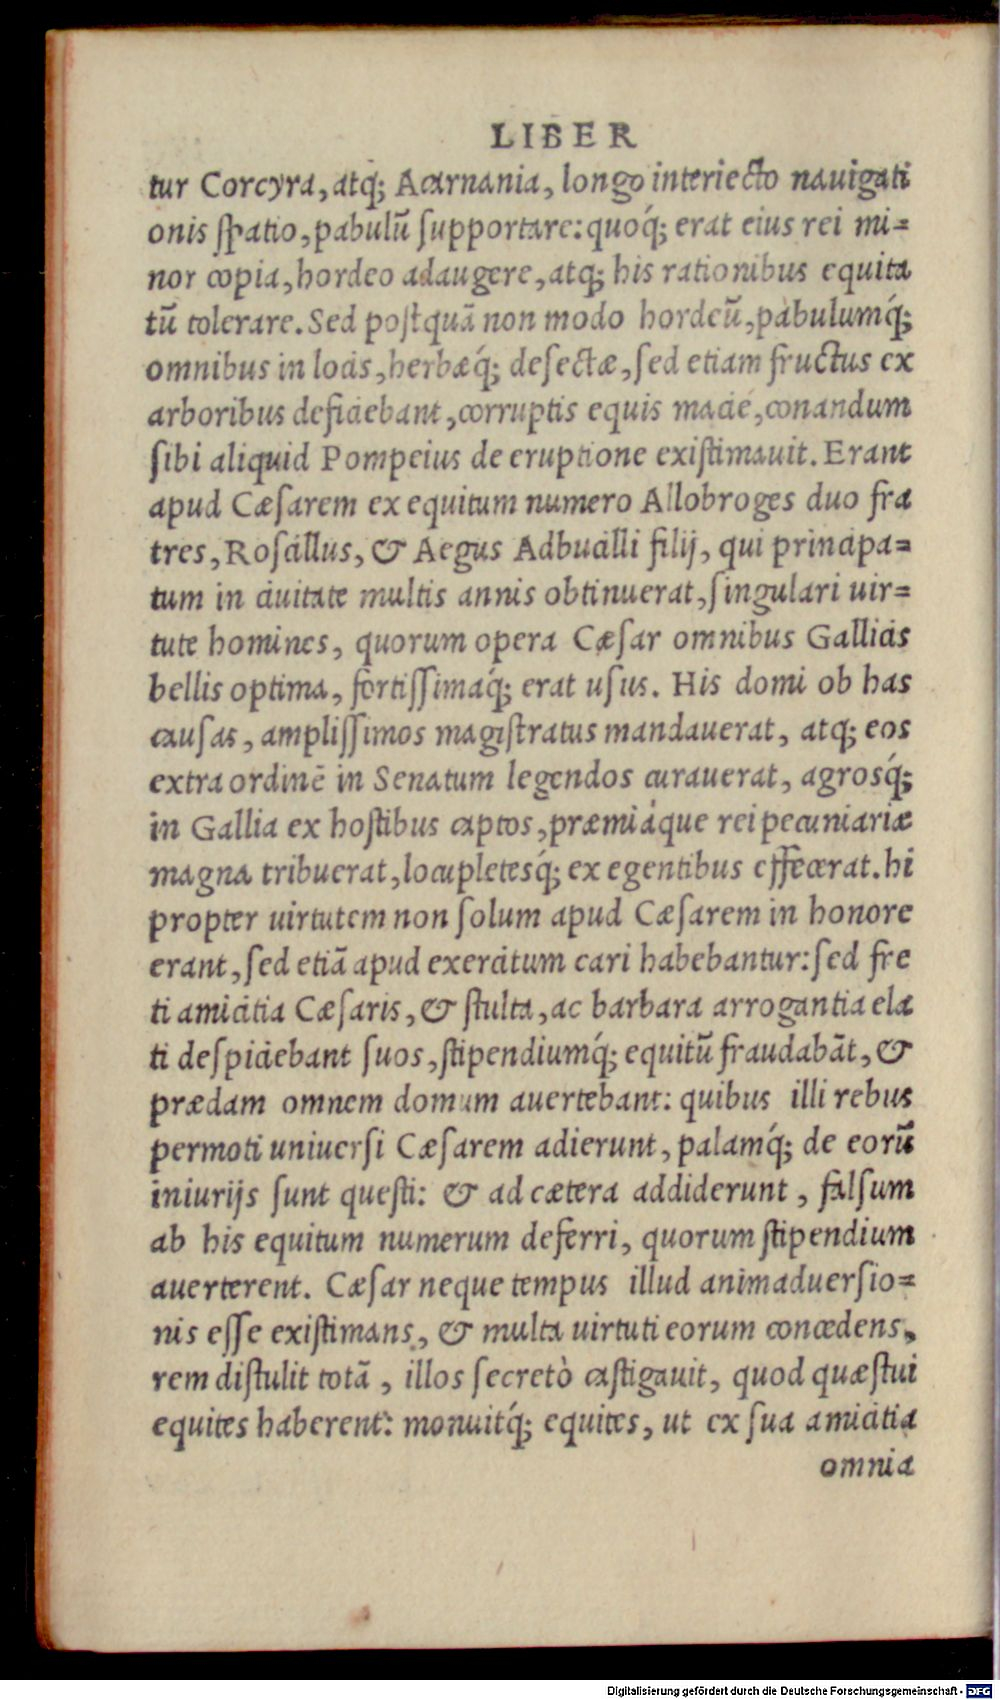 LIBER
tur Corcyra, atq; Acarnania, longo interiecto nauigati
onis spatio, pabulũ supportare: quoq́; erat eius rei mi=
nor copia, hordeo adaugere, atq; his rationibus equita
tũ tolerare. Sed postquã non modo hordeũ, pabulumq́;
omnibus in locis, herbæq́; desectæ, sed etiam fructus ex
arboribus deficiebant, corruptis equis macie, conandum
sibi aliquid Pompeius de eruptione existimauit. Erant
apud Cæsarem ex equitum numero Allobroges duo fra
tres, Roscillus, & Aegus Adbucilli filij, qui principa=
tum in ciuitate multis annis obtinuerat, singulari uir=
tute homines, quorum opera Cæsar omnibus Gallicis
bellis optima, fortissimaq́; erat usus. His domi ob has
causas, amplissimos magistratus mandauerat, atq; eos
extra ordinẽ in Senatum legendos curauerat, agrosq́;
in Gallia ex hostibus captos, præmiáque rei pecuniariæ
magna tribuerat, locupletesq́; ex egentibus effecerat. hi
propter uirtutem non solum apud Cæsarem in honore
erant, sed etiã apud exercitum cari habebantur: sed fre
ti amicitia Cæsaris, & stulta, ac barbara arrogantia ela
ti despiciebant suos, stipendiumq́; equitũ fraudabãt, &
prædam omnem domum auertebant: quibus illi rebus
permoti uniuersi Cæsarem adierunt, palamq́; de eorũ
iniurijs sunt questi: & ad cætera addiderunt, falsum
ab his equitum numerum deferri, quorum stipendium
auerterent. Cæsar neque tempus illud animaduersio=
nis esse existimans, & multa uirtuti eorum concedens,
rem distulit totã, illos secretò castigauit, quod quæstui
equites haberent: monuitq́; equites, ut ex sua amicitia
omnia
Digitalisierung gefördert durch die Deutsche Forschungsgemeinschaft - DFG